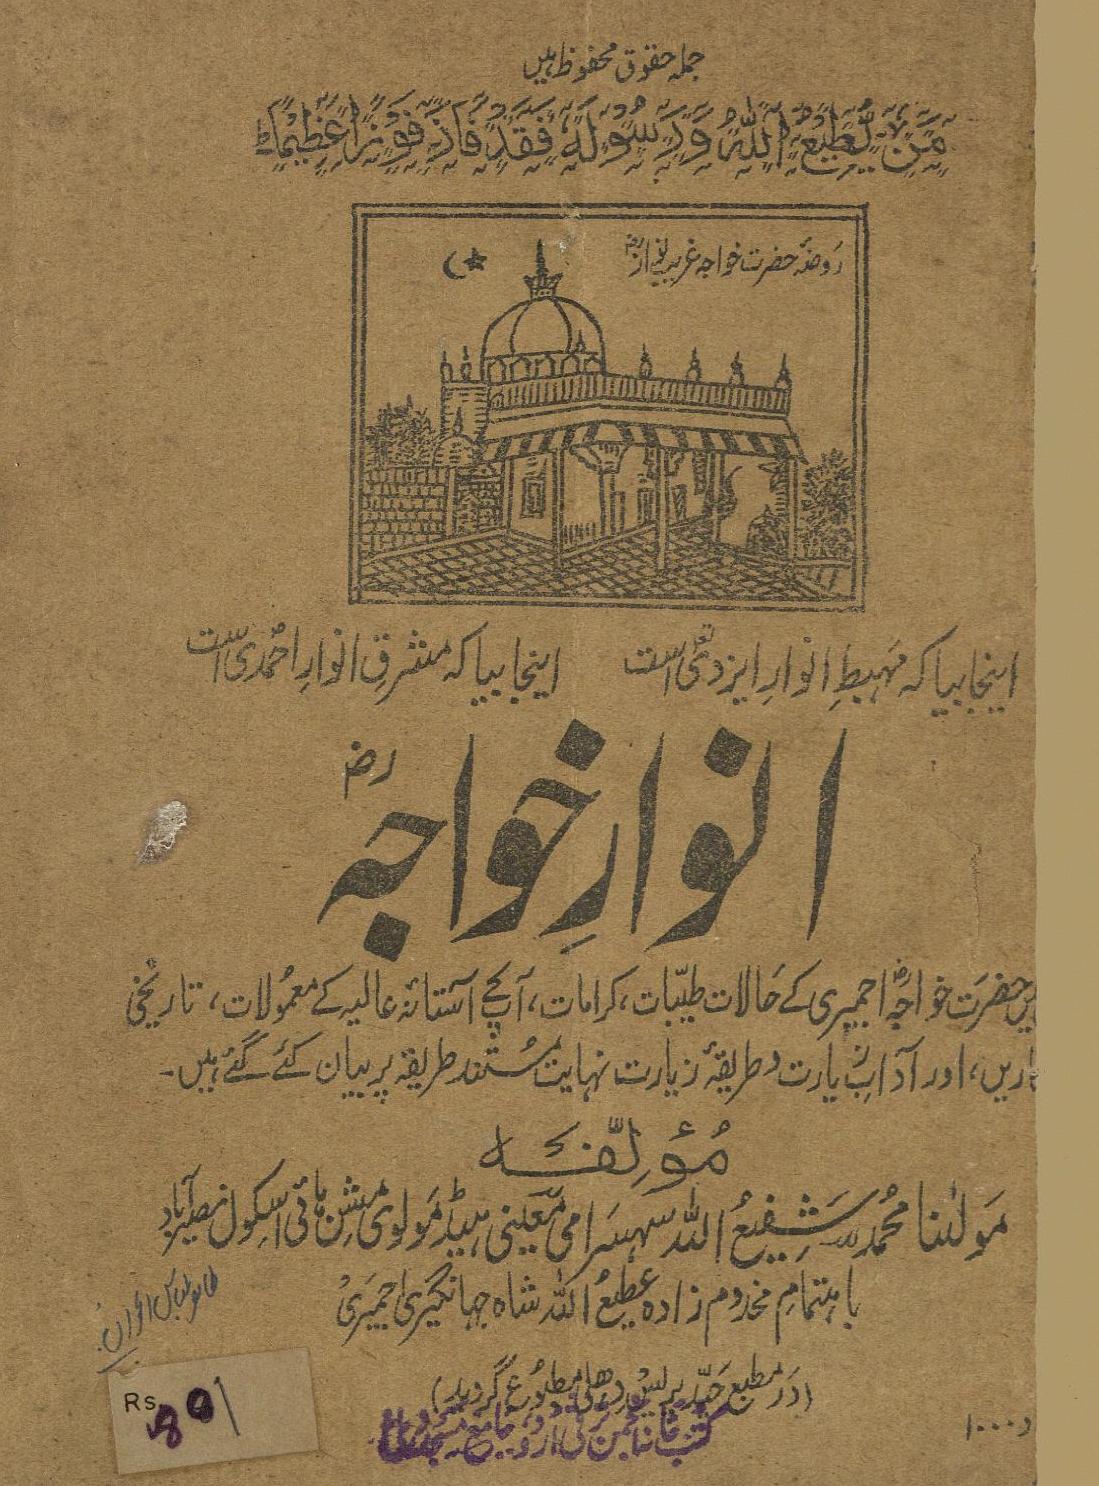 جملہ حقوق محفوظ ہیں
مَنْ يُّطِيعُ اللّٰهَ وَرَسُوْلَهٗ فَقَدْ فَازَ فَوْزًا عَظِيْمًا ط
روضۂ حضرت خواجہ غریب نواز رض
اینجا بیا کہ مہبطِ انوارِ ایزدی است اینجا بیا کہ مشرقِ انوارِ احمدی است
انوارِ خواجہ رض
میں حضرت خواجہ اجمیری کے حالات طیّبات، کرامات، آپکے آستانۂ عالیہ کے معمولات، تاریخی
اور آدابِ زیارت و طریقۂ زیارت نہایت مستند طریقہ پر بیان کئے گئے ہیں۔
مؤلِّفہ
مولٰنا محمد شفیع اللہ سہسرامی معینی ہیڈ مولوی مشن ہائی اسکول نصیرآباد
باہتمام مخدوم زادہ عطیع اللہ شاہ جہانگیری اجمیری
(در مطبع جید پریس دھلی مطبوع گردید)
کتب خانہ انجمن ترقی اردو جامع مسجد دہلی
Rs 80/
۱۰۰۰